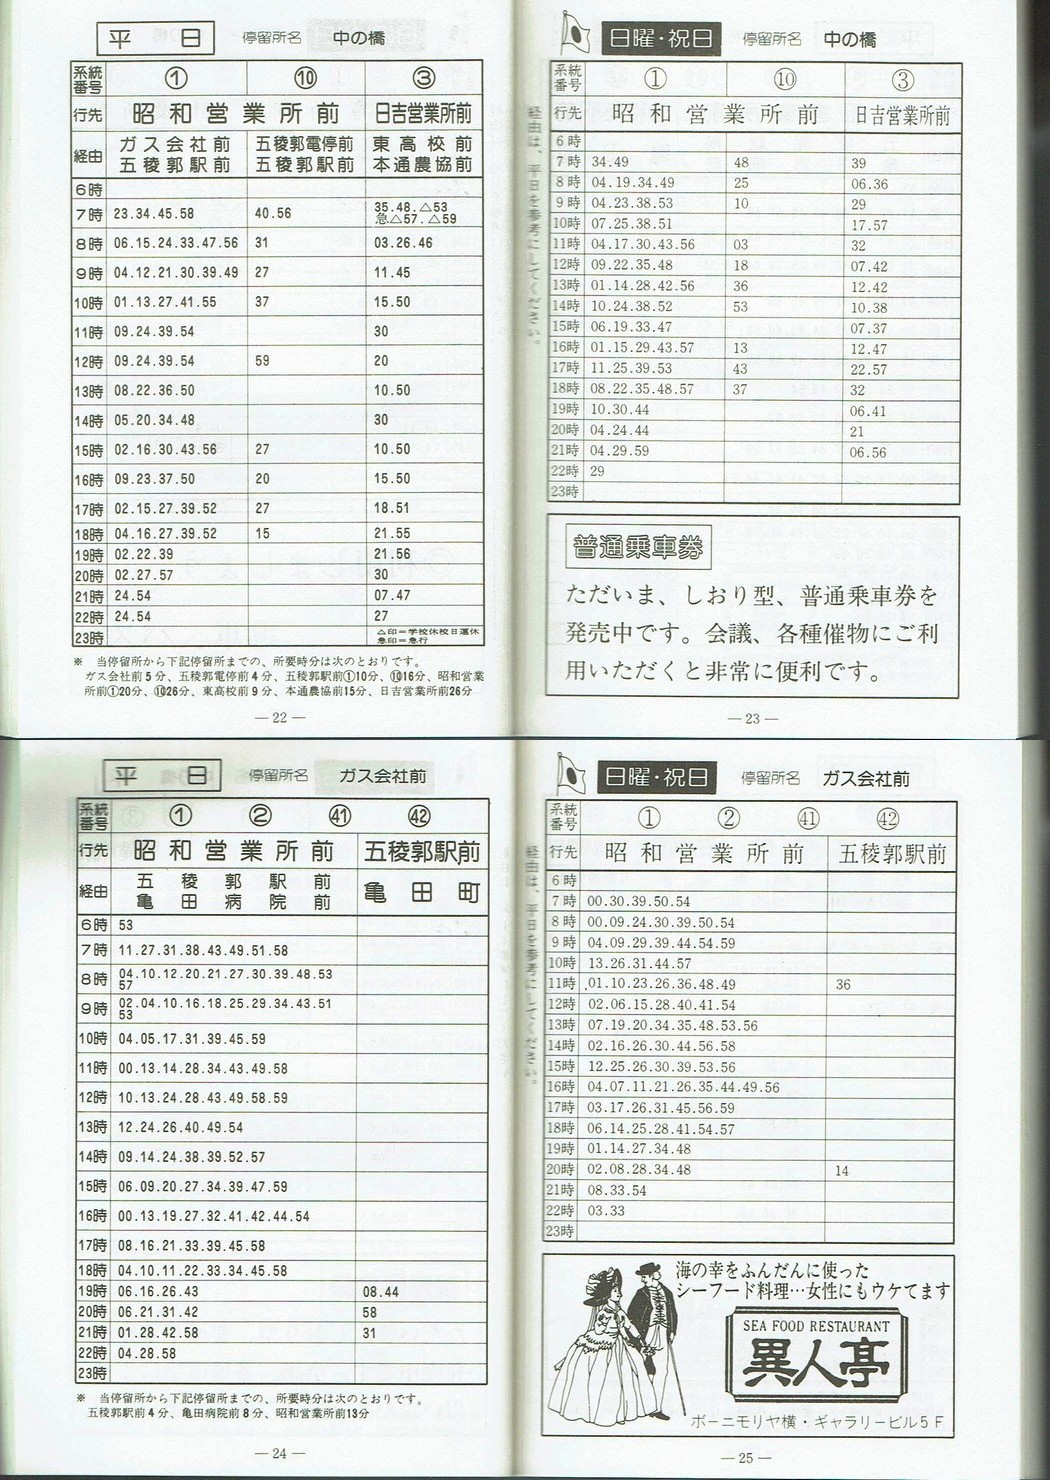 平　日　停留所名　中の橋
系統番号　①　⑩　③
行先　昭和営業所前　日吉営業所前
経由　ガス会社前 五稜郭駅前　五稜郭電停前 五稜郭駅前　東高校前 本通農協前
6時
7時　23.34.45.58　40.56　35.48.△53 急△57.△59
8時　06.15.24.33.47.56　31　03.26.46
9時　04.12.21.30.39.49　27　11.45
10時　01.13.27.41.55　37　15.50
11時　09.24.39.54　30
12時　09.24.39.54　59　20
13時　08.22.36.50　10.50
14時　05.20.34.48　30
15時　02.16.30.43.56　27　10.50
16時　09.23.37.50　20　15.50
17時　02.15.27.39.52　27　18.51
18時　04.16.27.39.52　15　21.55
19時　02.22.39　21.56
20時　02.27.57　30
21時　24.54　07.47
22時　24.54　27
23時　△印=学校休校日運休 急印=急行
※　当停留所から下記停留所までの、所要時分は次のとおりです。
ガス会社前5分、五稜郭電停前4分、五稜郭駅前①10分、⑩16分、昭和営業
所前①20分、⑩26分、東高校前9分、本通農協前15分、日吉営業所前26分
— 22 —
日曜・祝日　停留所名　中の橋
系統番号　①　⑩　③
行先　昭和営業所前　日吉営業所前
経由は、平日を参考にしてください。
6時
7時　34.49　48　39
8時　04.19.34.49　25　06.36
9時　04.23.38.53　10　29
10時　07.25.38.51　17.57
11時　04.17.30.43.56　03　32
12時　09.22.35.48　18　07.42
13時　01.14.28.42.56　36　12.42
14時　10.24.38.52　53　10.38
15時　06.19.33.47　07.37
16時　01.15.29.43.57　13　12.47
17時　11.25.39.53　43　22.57
18時　08.22.35.48.57　37　32
19時　10.30.44　06.41
20時　04.24.44　21
21時　04.29.59　06.56
22時　29
23時
普通乗車券
ただいま、しおり型、普通乗車券を
発売中です。会議、各種催物にご利
用いただくと非常に便利です。
— 23 —
平　日　停留所名　ガス会社前
系統番号　①　②　㊶　㊷
行先　昭和営業所前　五稜郭駅前
経由　五稜郭駅前 亀田病院前　亀田町
6時　53
7時　11.27.31.38.43.49.51.58
8時　04.10.12.20.21.27.30.39.48.53
57
9時　02.04.10.16.18.25.29.34.43.51
53
10時　04.05.17.31.39.45.59
11時　00.13.14.28.34.43.49.58
12時　10.13.24.28.43.49.58.59
13時　12.24.26.40.49.54
14時　09.14.24.38.39.52.57
15時　06.09.20.27.34.39.47.59
16時　00.13.19.27.32.41.42.44.54
17時　08.16.21.33.39.45.58
18時　04.10.11.22.33.34.45.58
19時　06.16.26.43　08.44
20時　06.21.31.42　58
21時　01.28.42.58　31
22時　04.28.58
23時
※　当停留所から下記停留所までの、所要時分は次のとおりです。
五稜郭駅前4分、亀田病院前8分、昭和営業所前13分
— 24 —
日曜・祝日　停留所名　ガス会社前
系統番号　①　②　㊶　㊷
行先　昭和営業所前　五稜郭駅前
経由は、平日を参考にしてください。
6時
7時　00.30.39.50.54
8時　00.09.24.30.39.50.54
9時　04.09.29.39.44.54.59
10時　13.26.31.44.57
11時　01.10.23.26.36.48.49　36
12時　02.06.15.28.40.41.54
13時　07.19.20.34.35.48.53.56
14時　02.16.26.30.44.56.58
15時　12.25.26.30.39.53.56
16時　04.07.11.21.26.35.44.49.56
17時　03.17.26.31.45.56.59
18時　06.14.25.28.41.54.57
19時　01.14.27.34.48
20時　02.08.28.34.48　14
21時　08.33.54
22時　03.33
23時
海の幸をふんだんに使った
シーフード料理…女性にもウケてます
SEA FOOD RESTAURANT
異人亭
ボーニモリヤ横・ギャラリービル5F
— 25 —